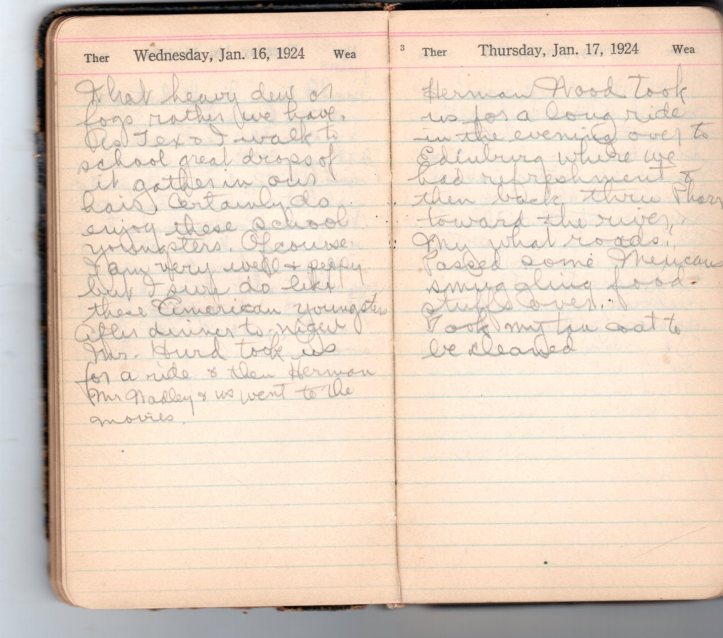 Ther Wednesday, Jan. 16, 1924 Wea
What heavy dew or
fogs rather we have.
As Tex & I walk to
school great drops of
it gather in our
hair. Certainly do
enjoy these school
youngsters. Of course
I am very well &
but I sure do like
these American youngsters
After dinner to-night
Mr. Hurd took us
for a ride & then Herman
Mr Nadley & us went to the
movies.
3 Ther Thursday, Jan. 17, 1924 Wea
Herman Wood took
us for a long ride
in the evening over to
Edinburg where we
had refreshment &
then back thru Pharr
toward the river,
My what roads!
Passed some Mexicans
smuggling food
stuffs over.
Took my tan coat to
be cleaned